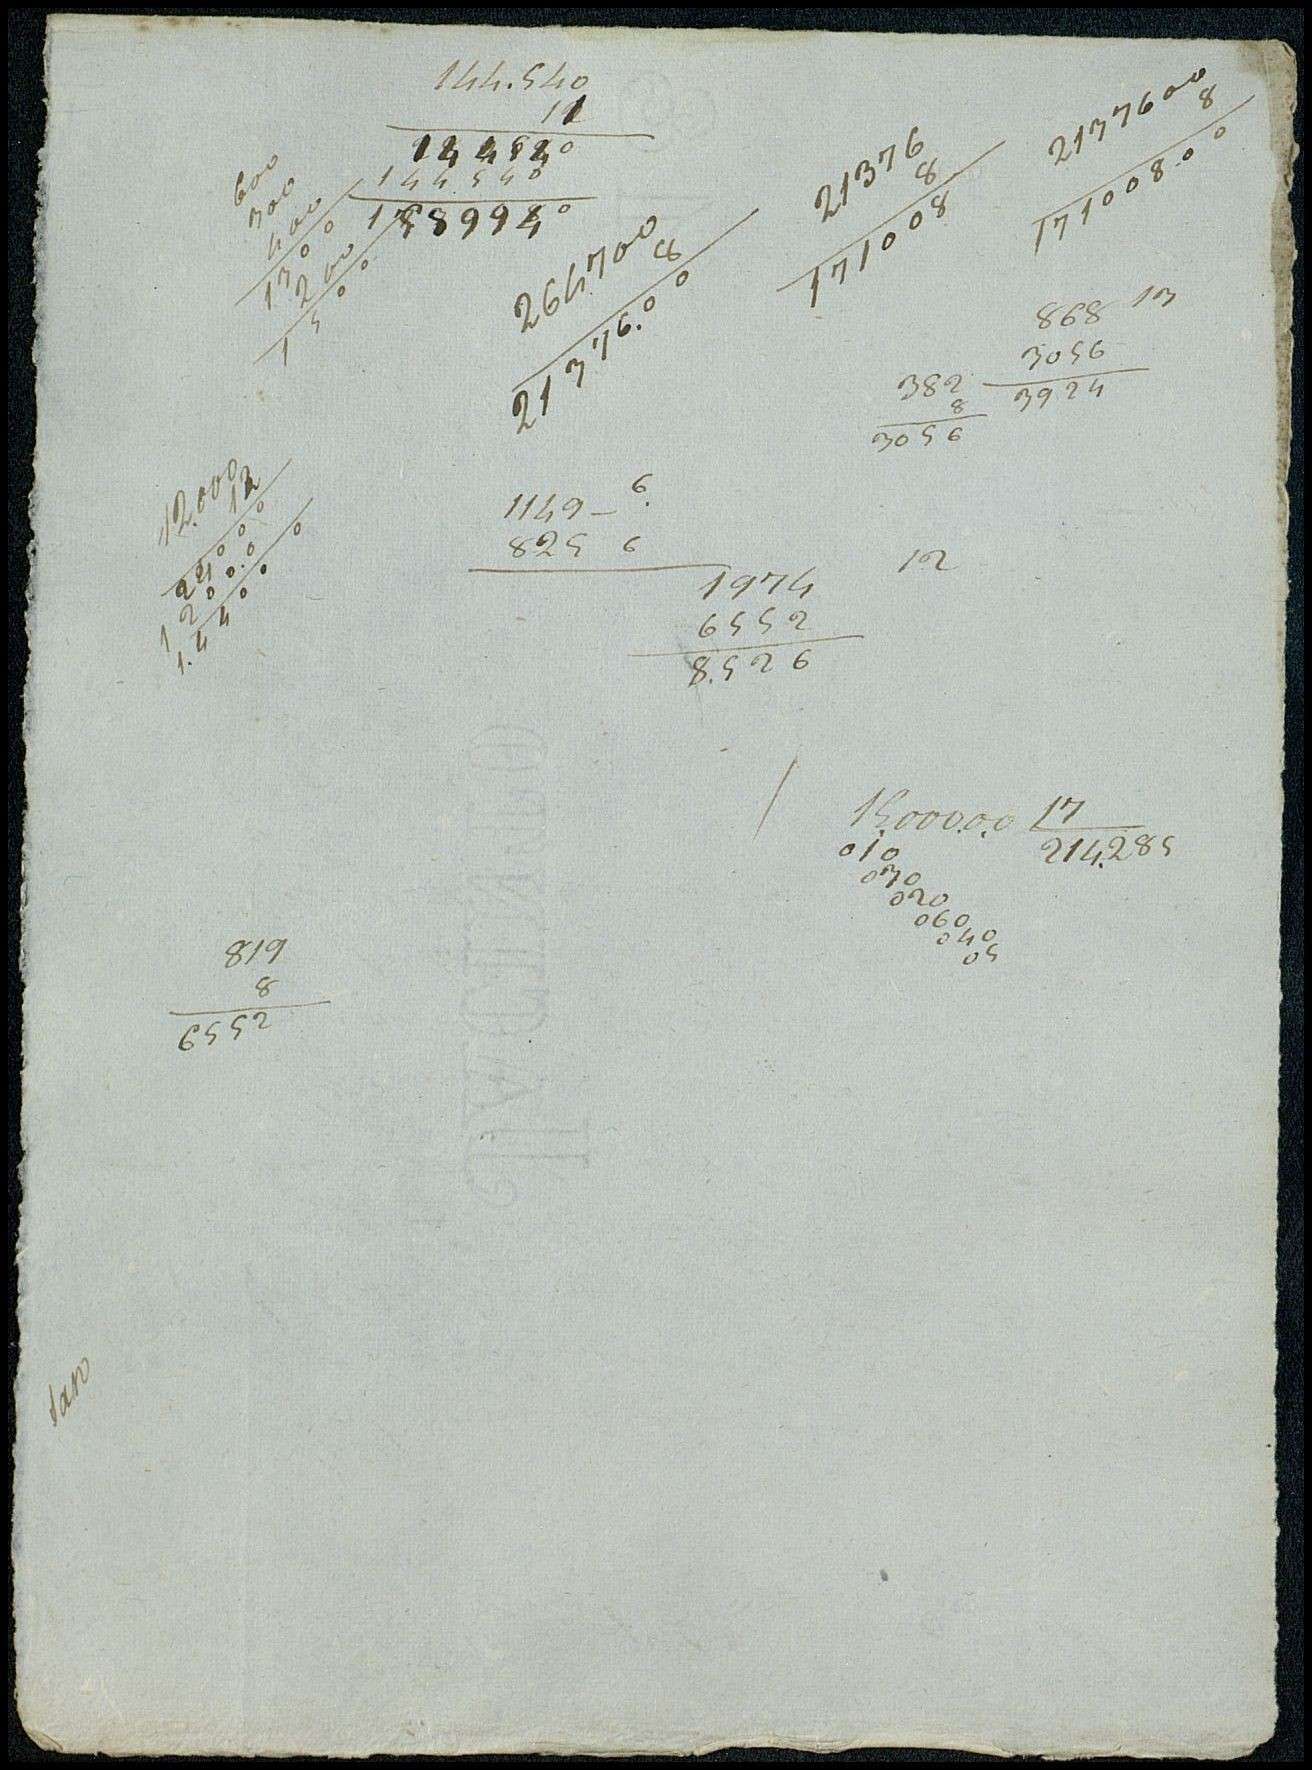 144.540
12
144540
1589940
600
300
400
1300
200
1500
264700
8
21376.00
21376
8
171008
2137600
8
171008.00
868 13
3056
3924
382
8
3056
12.000
12
24000
1200.0
1.44000
1149 – 6.
825 6
1974
6552
8.526
12
15.000.0.0 17
214.285
010
030
020
060
040
05
819
8
6552